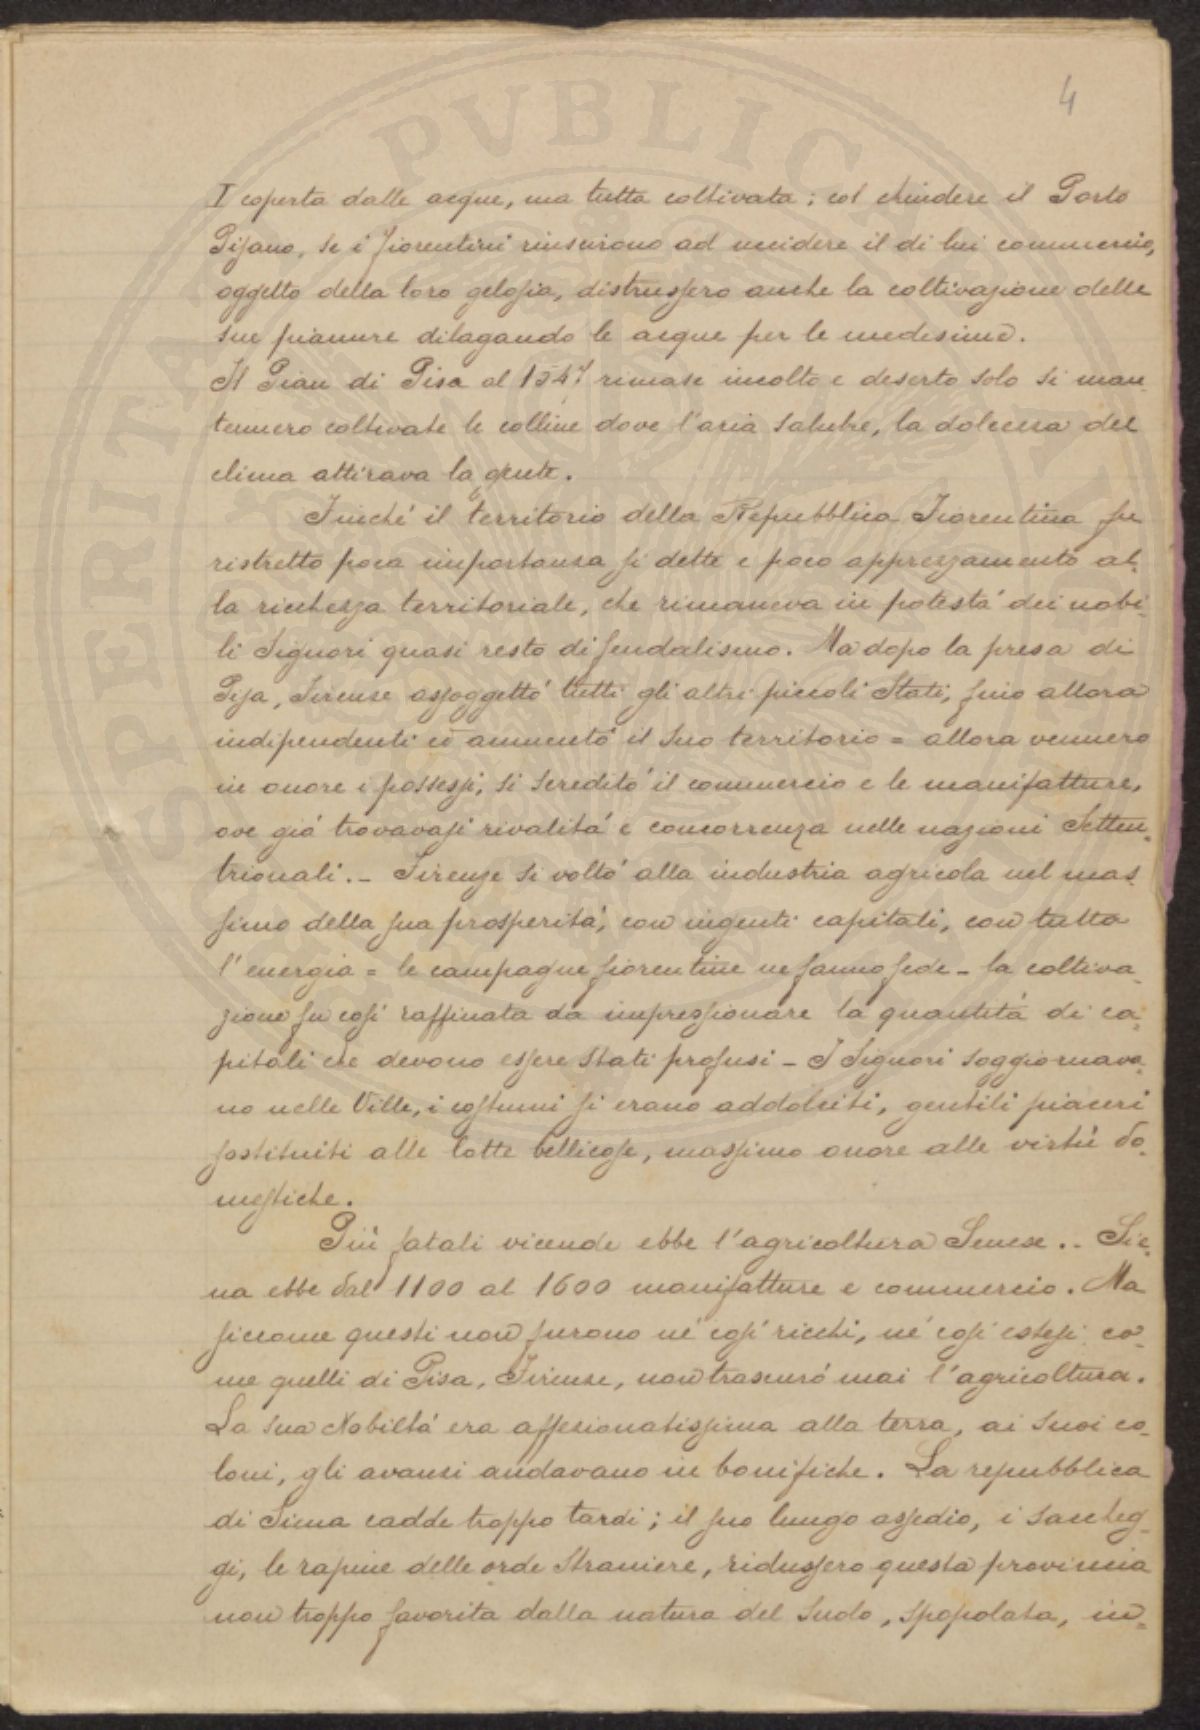 4
I coperta dalle acque, ma tutta coltivata; col chiudere il Porto
Pisano, se i fiorentini riuscirono ad uccidere il di lui commercio,
oggetto della loro gelosia, distrussero anche la coltivazione delle
sue pianure dilagando le acque per le medesime.
Il Pian di Pisa al 1547 rimase incolto e deserto solo si man-
tennero coltivate le colline dove l'aria salubre, la dolcezza del
clima attirava la gente.
Finché il territorio della Repubblica Fiorentina fu
ristretto poca importanza si dette e poco apprezzamento al-
la ricchezza territoriale, che rimaneva in potestá dei nobi-
li Signori quasi resto di feudalismo. Ma dopo la presa di
Pisa, Firenze assoggettó tutti gli altri piccoli Stati, fino allora
indipendenti ed aumentó il suo territorio = allora vennero
in onore i possessi, si screditó il commercio e le manifatture,
ove giá trovavasi rivalitá e concorrenza nelle nazioni Setten-
trionali. - Firenze si voltó alla industria agricola nel mas-
simo della sua prosperitá, con ingenti capitali, con tutta
l'energia = le campagne fiorentine ne fanno fede - la coltiva-
zione fu cosí raffinata da impressionare la quantitá di ca-
pitali che devono essere stati profusi - I Signori soggiornava-
no nelle Ville, i costumi si erano addolciti, gentili piaceri
sostituiti alle lotte bellicose, massimo onore alle virtú do-
mestiche.
Piú fatali vicende ebbe l'agricoltura Senese. - Sie-
na ebbe dal 1100 al 1600 manifatture e commercio. Ma
siccome questi non furono né cosí ricchi, né cosí estesi co-
me quelli di Pisa, Firenze, non trascuró mai l'agricoltura.
La sua Nobiltá era affezionatissima alla terra, ai suoi co-
loni, gli avanzi andavano in bonifiche. La repubblica
di Siena cadde troppo tardi; il suo lungo assedio, i saccheg-
gi, le rapine delle orde straniere, ridussero questa provincia
non troppo favorita dalla natura del suolo, spopolata, in-
PUBLICA